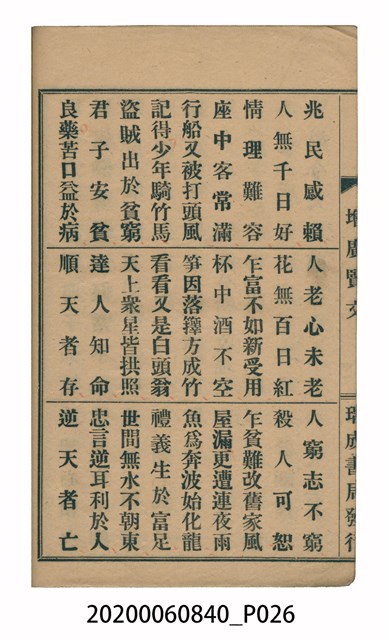 增廣賢文
瑞成書局發行
兆民感賴 人老心未老 人窮志不窮
人無千日好 花無百日紅 殺人可恕
情理難容 乍富不如新受用 乍貧難改舊家風
座中客常滿 杯中酒不空 屋漏更遭連夜雨
行船又被打頭風 笋因落籜方成竹 魚為奔波始化龍
記得少年騎竹馬 看看又是白頭翁 禮義生於富足
盜賊出於貧窮 天上衆星皆拱照 世間無水不朝東
君子安貧 達人知命 忠言逆耳利於人
良藥苦口益於病 順天者存 逆天者亡
20200060840_P026